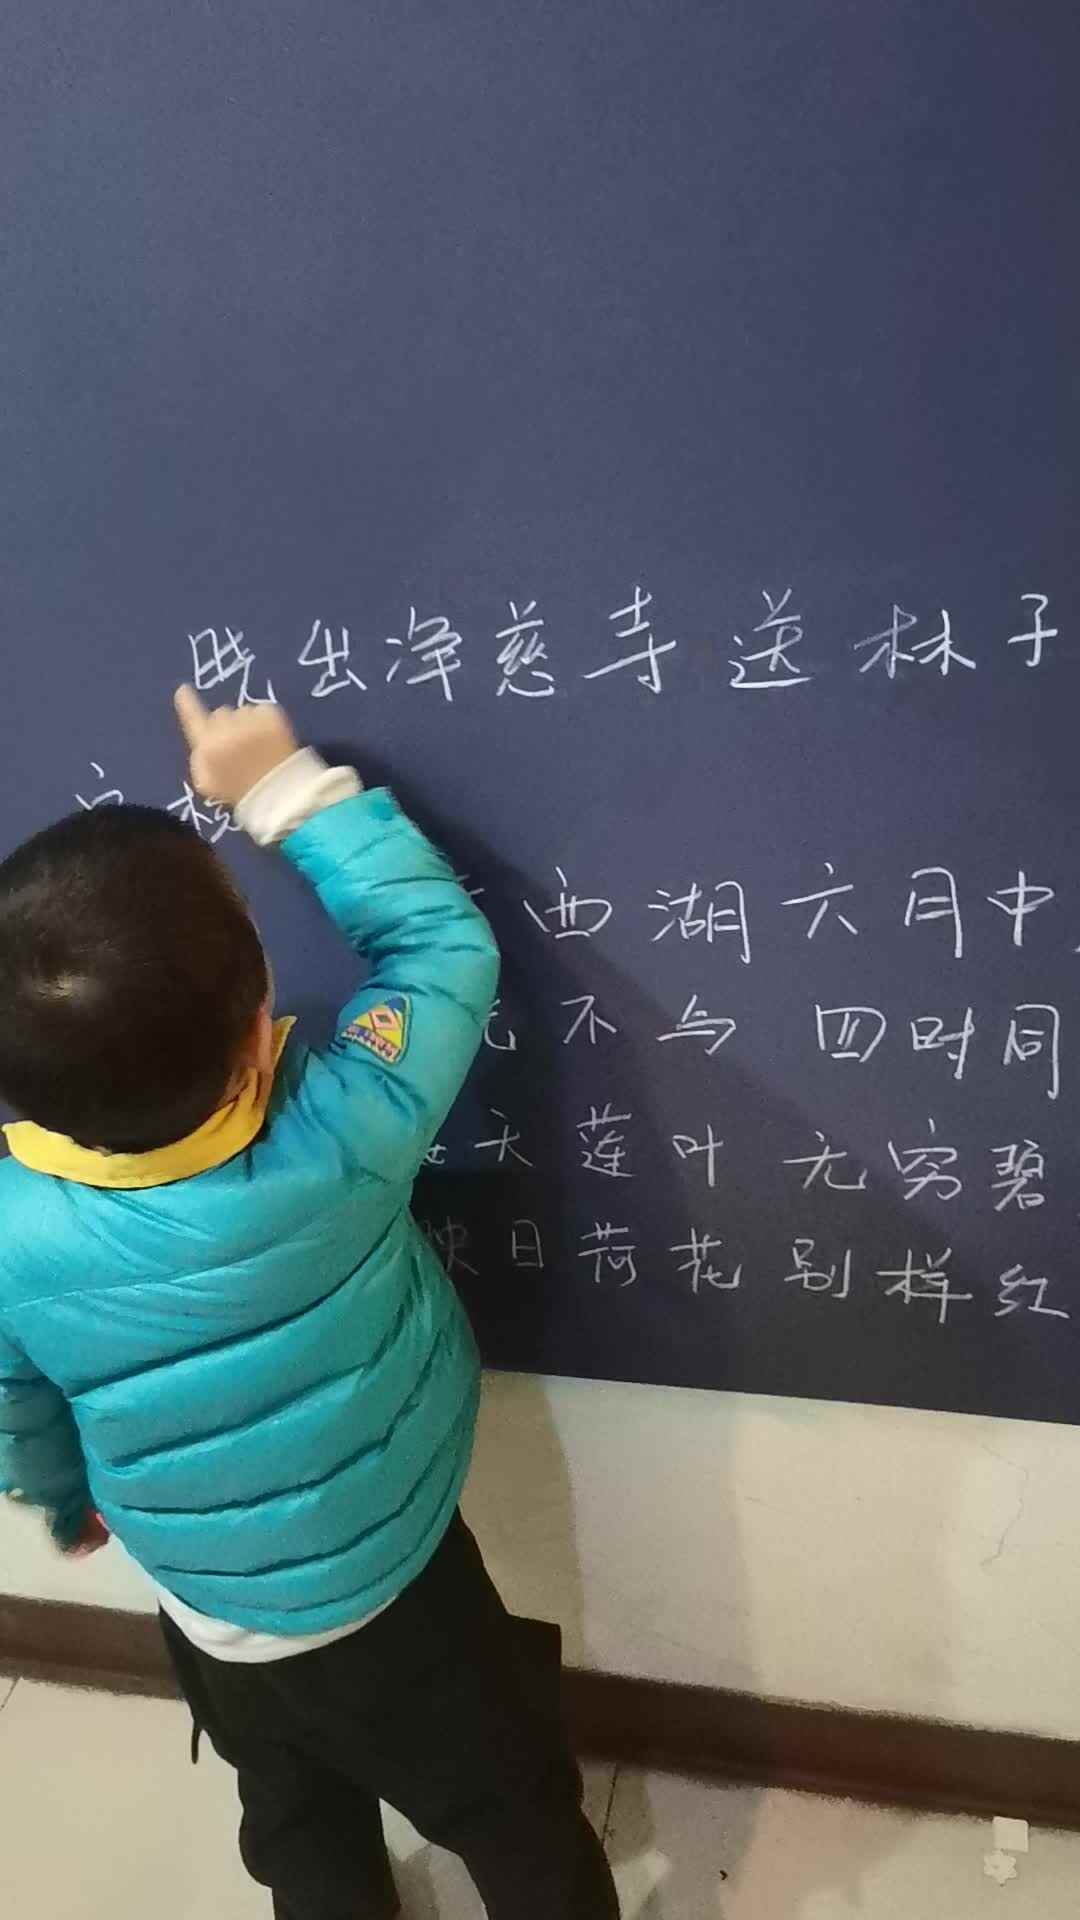 晓出净慈寺送林子
西湖六月中
不与四时同
天莲叶无穷碧
映日荷花别样红